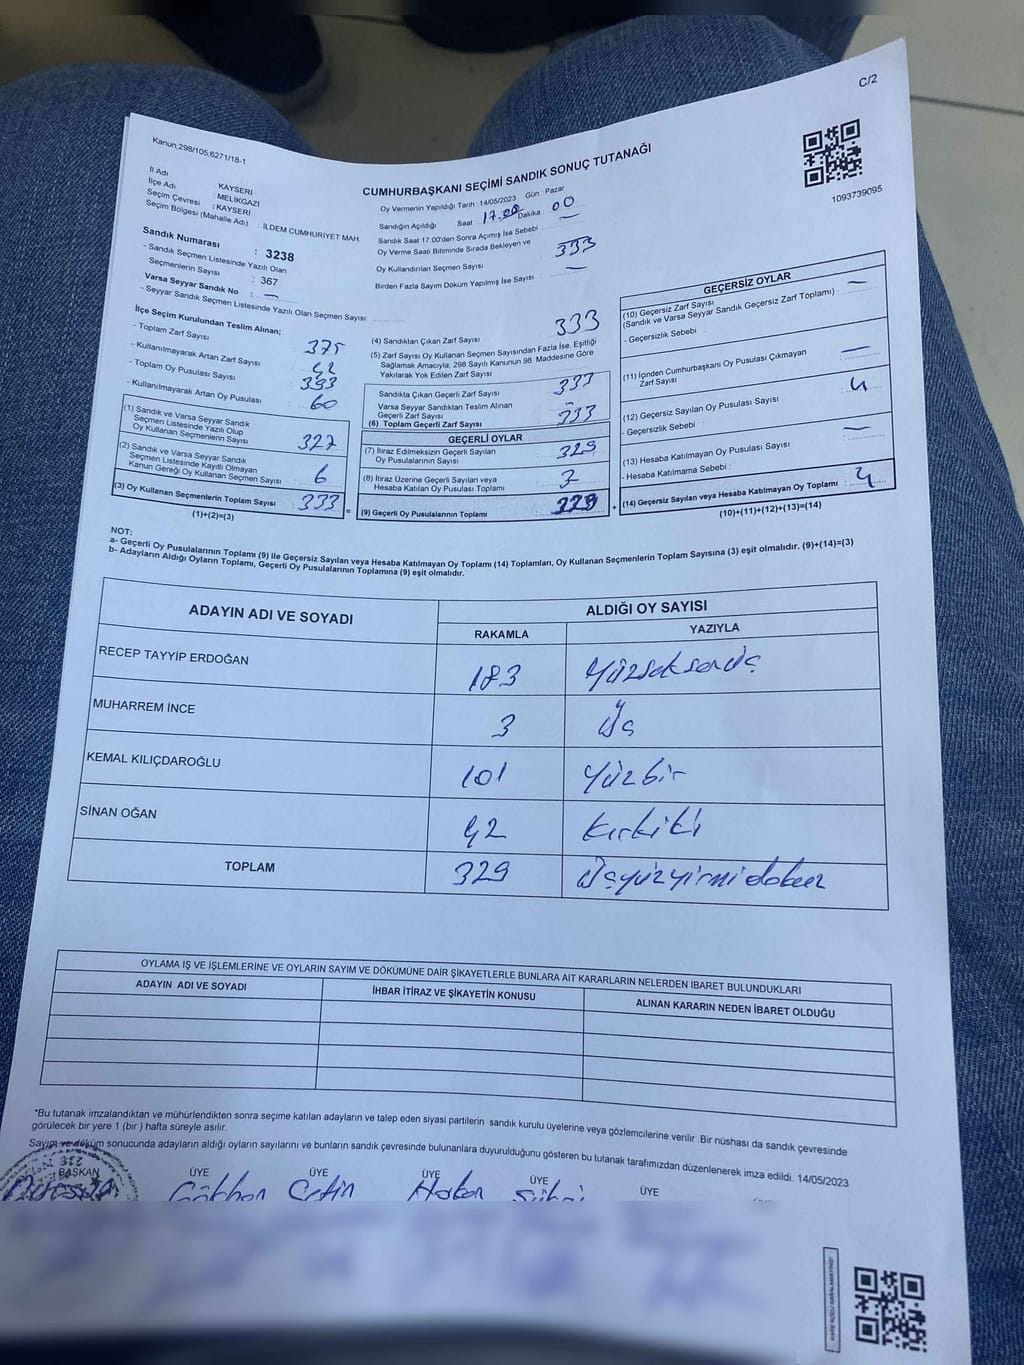 C/2
Kanun;298/105,6271/18-1
1093739095
CUMHURBAŞKANI SEÇİMİ SANDIK SONUÇ TUTANAĞI
İl Adı : KAYSERİ
İlçe Adı : MELİKGAZİ
Seçim Çevresi : KAYSERİ
Seçim Bölgesi (Mahalle Adı) : İLDEM CUMHURİYET MAH.
Sandık Numarası : 3238
- Sandık Seçmen Listesinde Yazılı Olan
Seçmenlerin Sayısı : 367
Varsa Seyyar Sandık No : —
- Seyyar Sandık Seçmen Listesinde Yazılı Olan Seçmen Sayısı
Oy Vermenin Yapıldığı Tarih : 14/05/2023 Gün : Pazar
Sandığın Açıldığı Saat 17.00 Dakika : 00
Sandık Saat 17:00'den Sonra Açımış İse Sebebi : —
Oy Verme Saati Bitiminde Sırada Bekleyen ve
Oy Kullandırılan Seçmen Sayısı 333
Birden Fazla Sayım Döküm Yapılmış İse Sayısı —
İlçe Seçim Kurulundan Teslim Alınan;
- Toplam Zarf Sayısı 375
- Kullanılmayarak Artan Zarf Sayısı 42
- Toplam Oy Pusulası Sayısı 393
- Kullanılmayarak Artan Oy Pusulası 60
(1) Sandık ve Varsa Seyyar Sandık
Seçmen Listesinde Yazılı Olup
Oy Kullanan Seçmenlerin Sayısı 327
(2) Sandık ve Varsa Seyyar Sandık
Seçmen Listesinde Kayıtlı Olmayan
Kanun Gereği Oy Kullanan Seçmen Sayısı 6
(3) Oy Kullanan Seçmenlerin Toplam Sayısı 333
(1)+(2)=(3)
(4) Sandıktan Çıkan Zarf Sayısı 333
(5) Zarf Sayısı Oy Kullanan Seçmen Sayısından Fazla İse, Eşitliği
Sağlamak Amacıyla; 298 Sayılı Kanunun 98. Maddesine Göre
Yakılarak Yok Edilen Zarf Sayısı
Sandıkta Çıkan Geçerli Zarf Sayısı 333
Varsa Seyyar Sandıktan Teslim Alınan
Geçerli Zarf Sayısı —
(6) Toplam Geçerli Zarf Sayısı 333
GEÇERLİ OYLAR
(7) İtiraz Edilmeksizin Geçerli Sayılan
Oy Pusulalarının Sayısı 329
(8) İtiraz Üzerine Geçerli Sayılan veya
Hesaba Katılan Oy Pusulası Toplamı
(9) Geçerli Oy Pusulalarının Toplamı 329
GEÇERSİZ OYLAR
(10) Geçersiz Zarf Sayısı
(Sandık ve Varsa Seyyar Sandık Geçersiz Zarf Toplamı) : —
- Geçersizlik Sebebi :
(11) İçinden Cumhurbaşkanı Oy Pusulası Çıkmayan
Zarf Sayısı —
(12) Geçersiz Sayılan Oy Pusulası Sayısı 4
- Geçersizlik Sebebi :
(13) Hesaba Katılmayan Oy Pusulası Sayısı —
- Hesaba Katılmama Sebebi :
(14) Geçersiz Sayılan veya Hesaba Katılmayan Oy Toplamı : 4
(10)+(11)+(12)+(13)=(14)
NOT:
a- Geçerli Oy Pusulalarının Toplamı (9) ile Geçersiz Sayılan veya Hesaba Katılmayan Oy Toplamı (14) Toplamları, Oy Kullanan Seçmenlerin Toplam Sayısına (3) eşit olmalıdır. (9)+(14)=(3)
b- Adayların Aldığı Oyların Toplamı, Geçerli Oy Pusulalarının Toplamına (9) eşit olmalıdır.
ADAYIN ADI VE SOYADI ALDIĞI OY SAYISI
RAKAMLA YAZIYLA
RECEP TAYYİP ERDOĞAN 183 Yüzseksenüç
MUHARREM İNCE 3 Üç
KEMAL KILIÇDAROĞLU 101 Yüzbir
SİNAN OĞAN 42 Kırkiki
TOPLAM 329 Üçyüzyirmidokuz
OYLAMA İŞ VE İŞLEMLERİNE VE OYLARIN SAYIM VE DÖKÜMÜNE DAİR ŞİKAYETLERLE BUNLARA AİT KARARLARIN NELERDEN İBARET BULUNDUKLARI
ADAYIN ADI VE SOYADI İHBAR İTİRAZ VE ŞİKAYETİN KONUSU ALINAN KARARIN NEDEN İBARET OLDUĞU
*Bu tutanak imzalandıktan ve mühürlendikten sonra seçime katılan adayların ve talep eden siyasi partilerin sandık kurulu üyelerine veya gözlemcilerine verilir. Bir nüshası da sandık çevresinde
görülecek bir yere 1 (bir ) hafta süreyle asılır.
Sayım ve döküm sonucunda adayların aldığı oyların sayılarını ve bunların sandık çevresinde bulunanlara duyurulduğunu gösteren bu tutanak tarafımızdan düzenlenerek imza edildi. 14/05/2023
BAŞKAN ÜYE ÜYE ÜYE ÜYE ÜYE
Gökhan Çetin Hakan